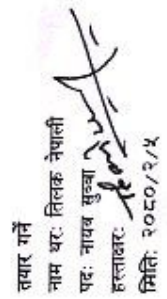 तयार गर्ने
नाम थर: तिलक नेपाली
पद: नायव सुव्बा
हस्ताक्षर:
मिति: २०८०/२/५